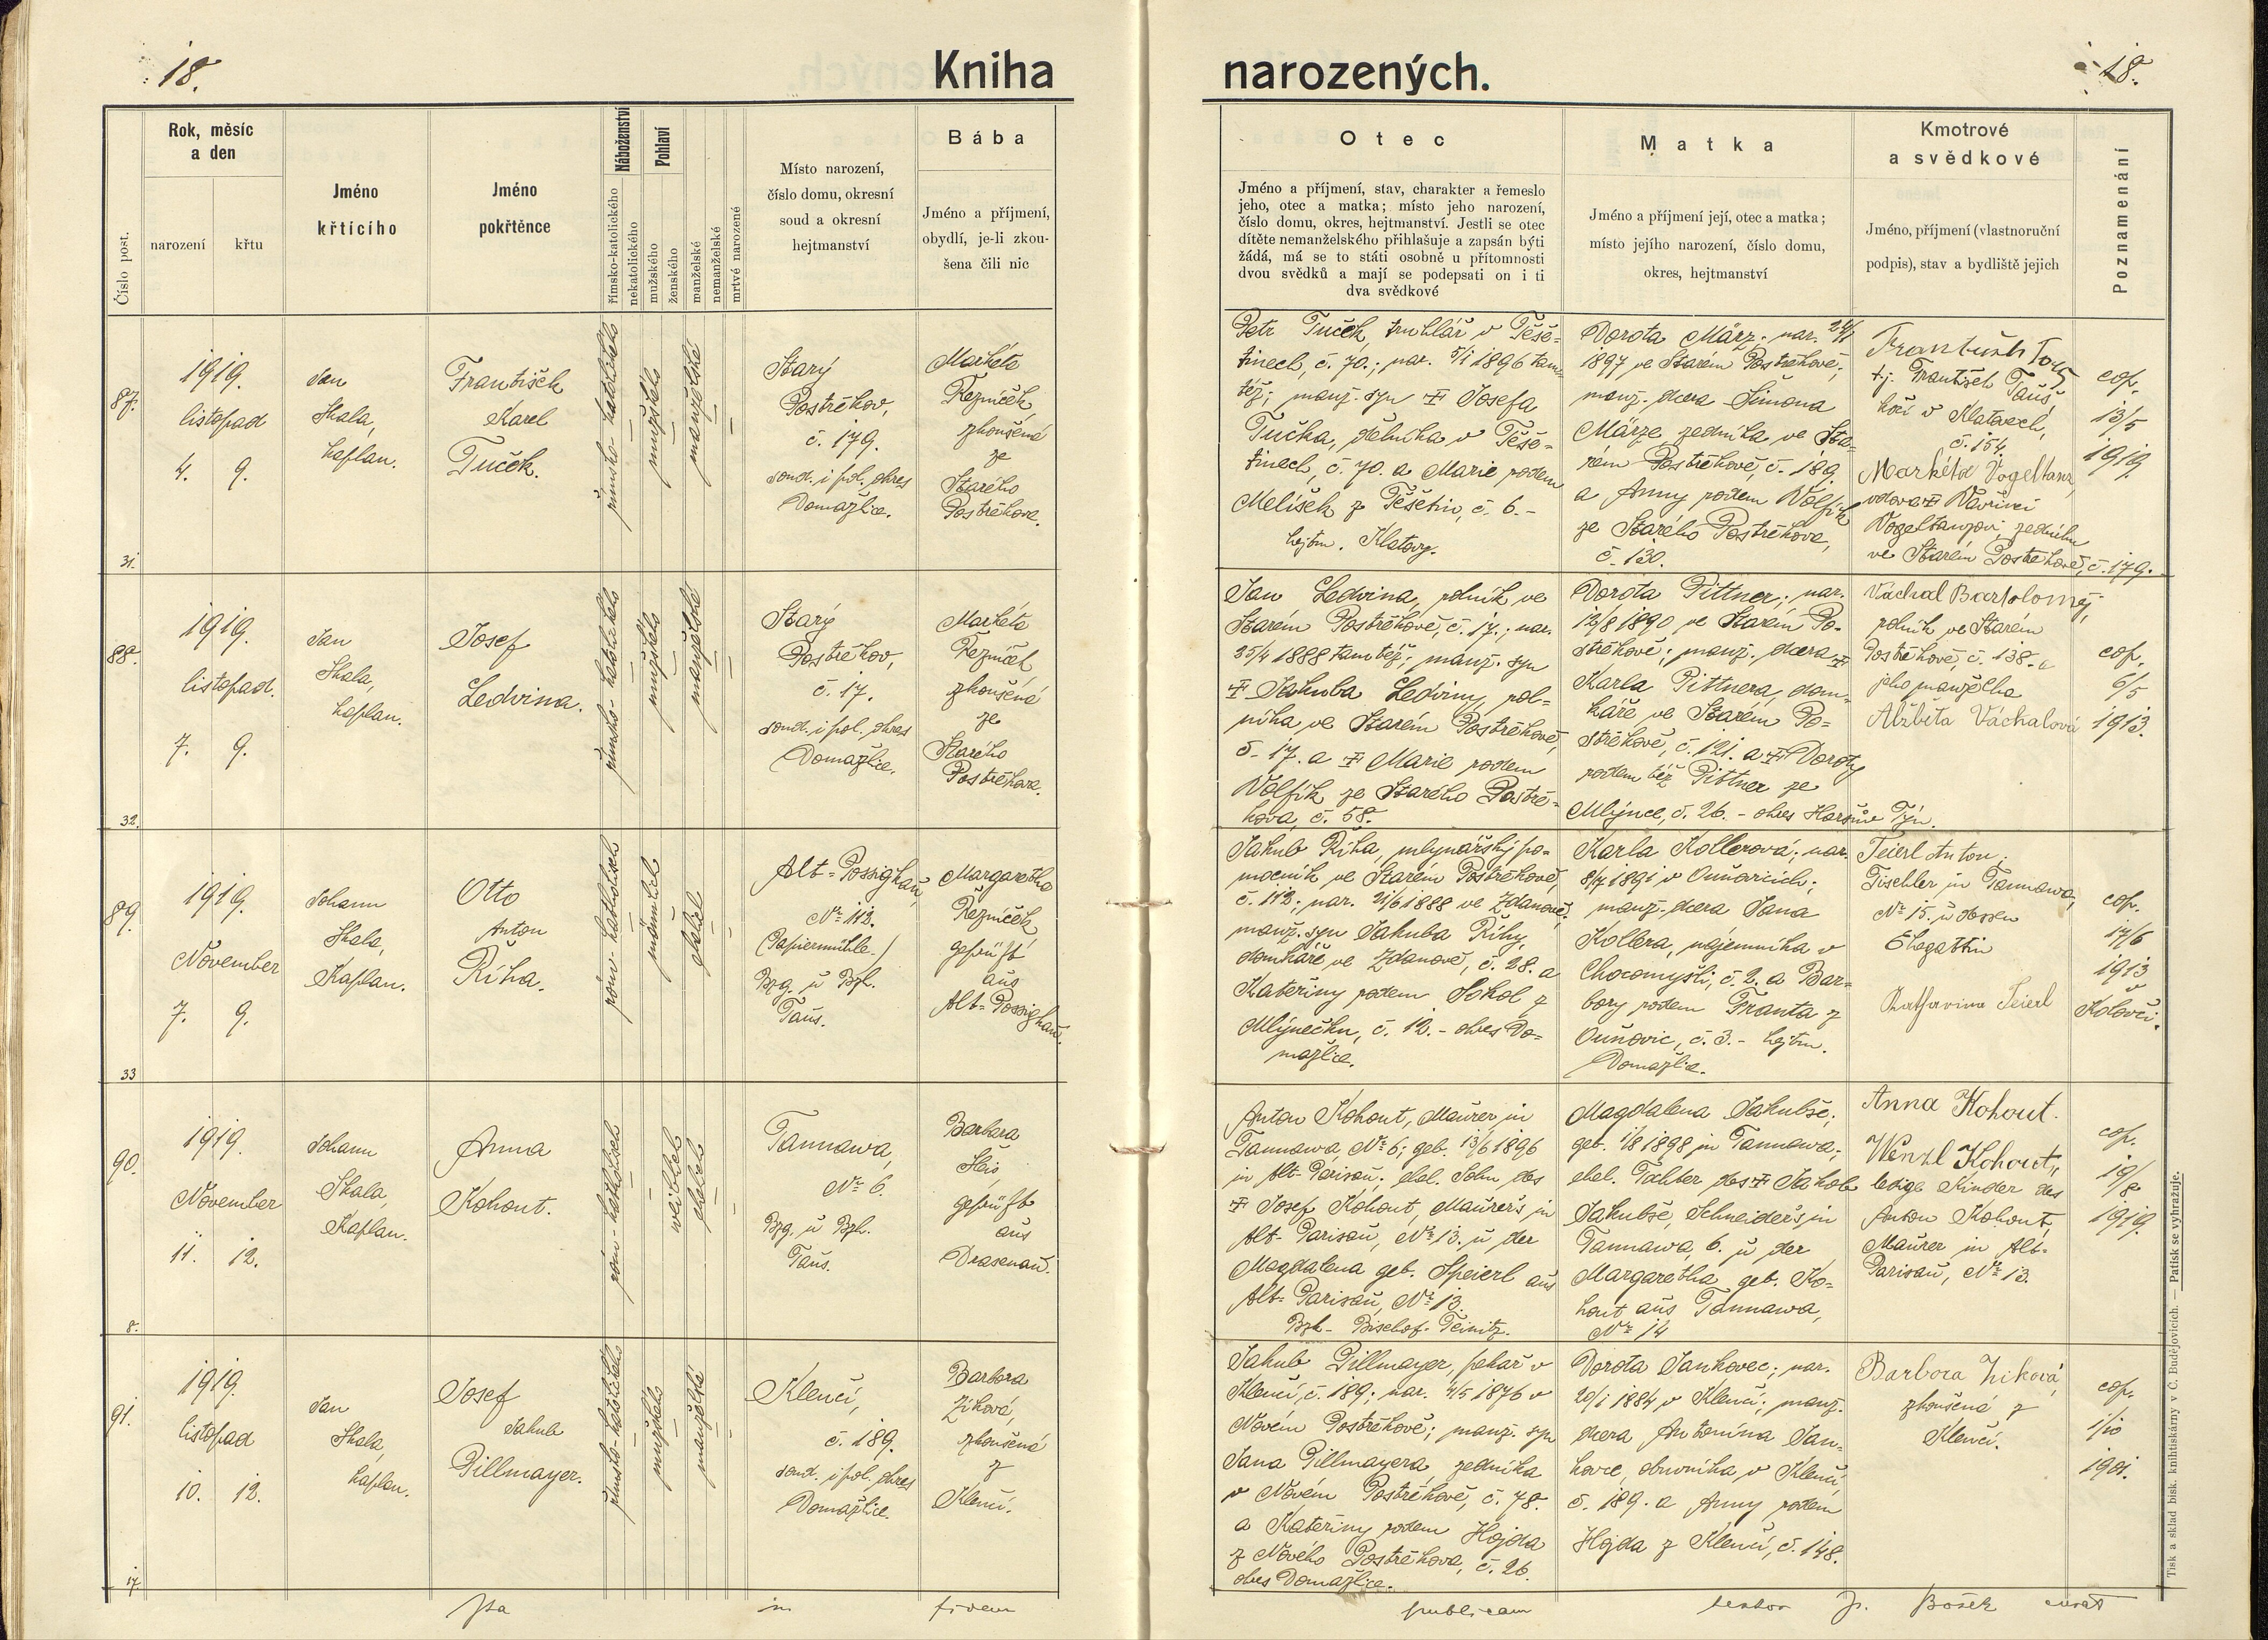 18.
Kniha
narozených.
18.
Číslo post.
Rok, měsíc
a den
narození
křtu
Jméno
křtícího
Jméno
pokřtěnce
Náboženství
římsko-katolického
nekatolického
Pohlaví
mužského
ženského
manželské
nemanželské
mrtvé narozené
Místo narození,
číslo domu, okresní
soud a okresní
hejtmanství
Bába
Jméno a příjmení,
obydlí, je-li zkou-
šena čili nic
Otec
Jméno a příjmení, stav, charakter a řemeslo
jeho, otec a matka; místo jeho narození,
číslo domu, okres, hejtmanství. Jestli se otec
dítěte nemanželského přihlašuje a zapsán býti
žádá, má se to státi osobně u přítomnosti
dvou svědků a mají se podepsati on i ti
dva svědkové
Matka
Jméno a příjmení její, otec a matka;
místo jejího narození, číslo domu,
okres, hejtmanství
Kmotrové
a svědkové
Jméno, příjmení (vlastnoruční
podpis), stav a bydliště jejich
Poznamenání
87.
1919.
listopad
4. 9.
31.
Jan
Skala,
kaplan.
František
Karel
Tuček.
římsko-katolického
mužského
manželské
Starý
Postřekov,
č. 179.
soud. i pol. okres
Domažlice.
Markéta
Řezníček
zkoušená
ze
Starého
Postřekova.
Petr Tuček, truhlář v Těše-
tinech, č. 70.; nar. 5/1 1896 tam-
též; manž. syn Josefa
Tučka, dělníka v Těše-
tinech, č. 70. a Marie rodem
Melíšek z Těšetin, č. 6.-
hejtm. Klatovy.
Dorota März; nar.
1897 ve Starém Postřekově;
manž. dcera Šimona
Märze, zedníka ve Sta-
rém Postřekově, č. 189.
a Anny rodem Wolfík
ze Starého Postřekova,
č. 130.
t.j. František Tauš
kočí v Klatovech,
č. 154.
Markéta Vogeltanz,
vdova
Vogeltanzovi, zedníku
ve Starém Postřekově, č. 179.
cop.
13/5
1919.
88.
1919.
listopad.
7. 9.
32.
Jan
Skala,
kaplan.
Josef
Ledvina.
římsko-katolického
mužského
manželské
Starý
Postřekov,
č. 17.
soud. i pol. okres
Domažlice.
Markéta
Řezníček
zkoušená
ze
Starého
Postřekova.
Jan Ledvina, rolník ve
Starém Postřekově, č. 17.; nar.
25/4 1888 tamtéž; manž. syn
Jakuba Ledviny, rol-
níka ve Starém Postřekově,
č. 17. a Marie rodem
Wolfík ze Starého Postře-
kova, č. 58.
Dorota Pittner; nar.
12/8 1890 ve Starém Po-
střekově; manž. dcera
Karla Pittnera, dom-
káře ve Starém Po-
střekově, č. 121. a Doroty
rodem též Pittner ze
Mlýnce, č. 26. - okres Horšův Týn.
Váchal Bartoloměj,
rolník ve Starém
Postřekově, č. 138. a
jeho manželka
Alžběta Váchalová
cop.
6/5
1913.
89.
1919.
November
7. 9.
33
Johann
Skala,
Kaplan.
Otto
Anton
Říha.
röm-katholisch
männlich
ehelich
Alt-Possigkau,
No 113.
(Papiermühle.)
Bzg. u Bzh.
Taus.
Margaretha
Řezníček,
geprüft
aus
Alt-Possigkau.
Jakub Říha, mlynářský po-
mocník ve Starém Postřekově,
č. 113.; nar. 21/6 1888 ve Zdanově;
manž. syn Jakuba Říhy,
domkáře ve Zdanově, č. 28. a
Kateřiny rodem Sokol z
Mlýnečku, č. 12. - okres Do-
mažlice.
Karla Kollerová; nar.
8/7 1891 v Ouňovicích;
manž. dcera Jana
Kollera, nájemníka v
Chocomyšli, č. 2. a Bar-
bory rodem Franta z
Ouňovic, č. 3. - hejtm.
Domažlice.
Teierl Anton,
Tischler in Tannawa,
No 15. u dessen
Ehegattin
Katharina Teierl
cop.
17/6
1913
v
Koloveči.
90.
1919.
November
11. 12.
8.
Johann
Skala,
Kaplan.
Anna
Kohout.
röm-katholisch
weiblich
ehelich
Tannawa,
No 6.
Bzg. u Bzh.
Taus.
Barbara
geprüft
aus
Drasenau.
Anton Kohout, Maurer in
Tannawa, No 6; geb. 13/6 1896
in Alt-Parisau; ehel. Sohn des
Josef Kohout, Maurers in
Alt-Parisau, No 13. u der
Magdalena geb. Speierl aus
Alt-Parisau, No 13.
Bzh- Bischof-Teinitz.
Magdalena Jakubše;
geb. 1/8 1898 in Tannawa;
ehel. Tochter des Jakob
Jakubše, Schneiders in
Tannawa, 6. u der
Margaretha geb. Ko-
hout aus Tannawa,
No 14
Anna Kohout.
Wenzl Kohout,
ledige Kinder des
Anton Kohout,
Maurer in Alt-
Parisau, No 13.
cop.
19/8
1919.
91.
1919.
listopad
10. 12.
17.
Jan
Skala,
kaplan.
Josef
Jakub
Pillmayer.
římsko-katolického
mužského
manželské
Klenčí,
č. 189.
soud. i pol. okres
Domažlice.
Barbora
Ziková,
zkoušená
z
Klenčí.
Jakub Pillmayer, pekař v
Klenčí, č. 189; nar. 4/5 1876 v
Novém Postřekově; manž. syn
Jana Pillmayera, zedníka
v Novém Postřekově, č. 78.
a Kateřiny rodem Hojda
z Nového Postřekova, č. 26.
okres Domažlice.
Dorota Jankovec; nar.
20/1 1884 v Klenčí; manž.
dcera Antonína Jan-
kovce, obuvníka v Klenčí
č. 189. a Anny rodem
Hojda z Klenčí, č. 148.
Barbora Ziková,
zkoušená z
Klenčí.
cop.
1/10
1901.
in fidem publicam testor Bošek
Tisk a sklad bisk. knihtiskárny v Č. Budějovicích. — Patisk se vyhražuje.